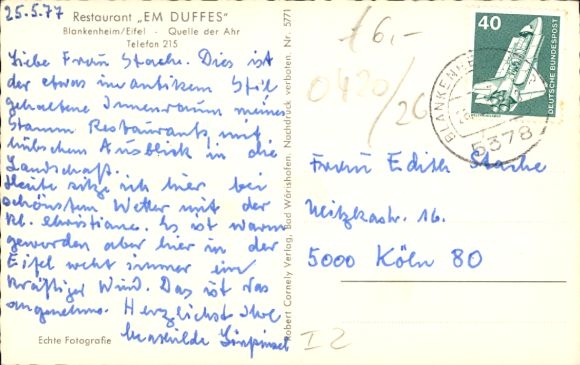 25.5.77
Restaurant „EM DUFFES"
Blankenheim/Eifel - Quelle der Ahr
Telefon 215
Liebe Frau Stache. Dies ist
der etwas im antiken Stil
gehaltene Innenraum meines
Stamm Restaurants, mit
hübschem Ausblick in die
Landschaft.
Heute sitze ich hier bei
schönstem Wetter mit der
kl. Christiane. Es ist warm
geworden aber hier in der
Eifel weht immer ein
kräftiger Wind. Das ist das
angenehme. Herzlichst Ihre
Mathilde
Echte Fotografie
Robert Cornely Verlag, Bad Wörishofen. Nachdruck verboten. Nr. 5771
16,-
0420/26
40
DEUTSCHE BUNDESPOST
BLANKENHE
5378
Frau Edith Stache
Neitzkastr. 16.
5000 Köln 80
I 2